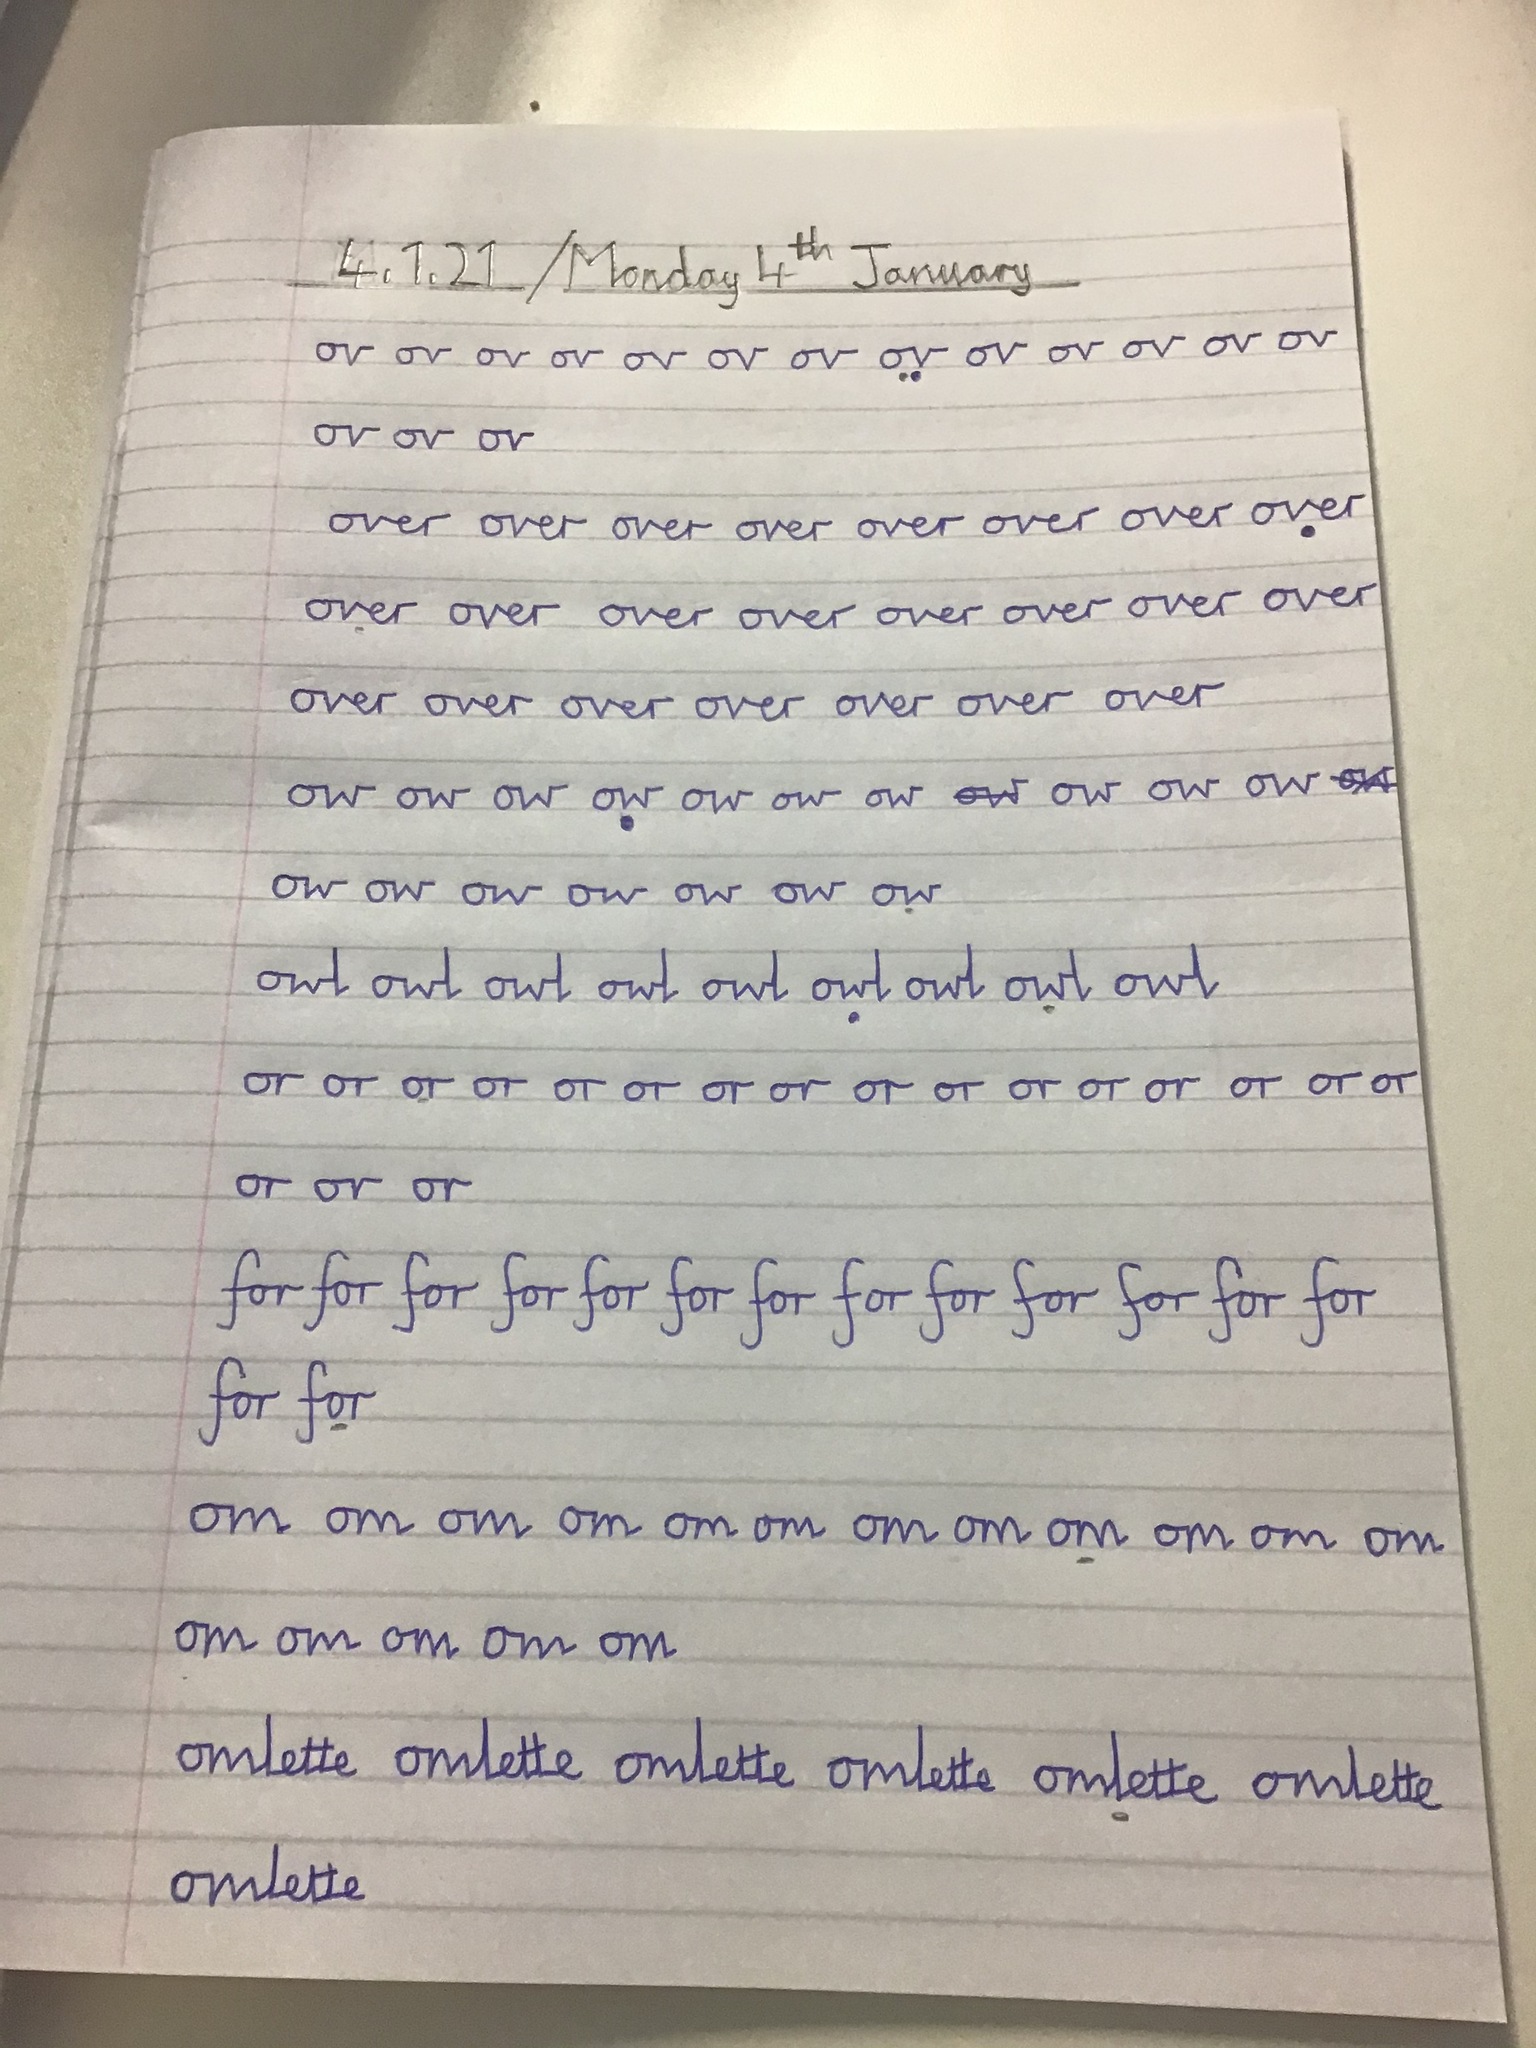 4.1.21 / Monday 4th January
ov ov ov ov ov ov ov ov ov ov ov ov ov
ov ov ov
over over over over over over over over
over over over over over over over over
over over over over over over over
ow ow ow ow ow ow ow ow ow ow ow
ow ow ow ow ow ow ow
owl owl owl owl owl owl owl owl owl
or or or or or or or or or or or or or or or or
or or or
for for for for for for for for for for for for for
for for
om om om om om om om om om om om om
om om om om om
omlette omlette omlette omlette omlette omlette
omlette